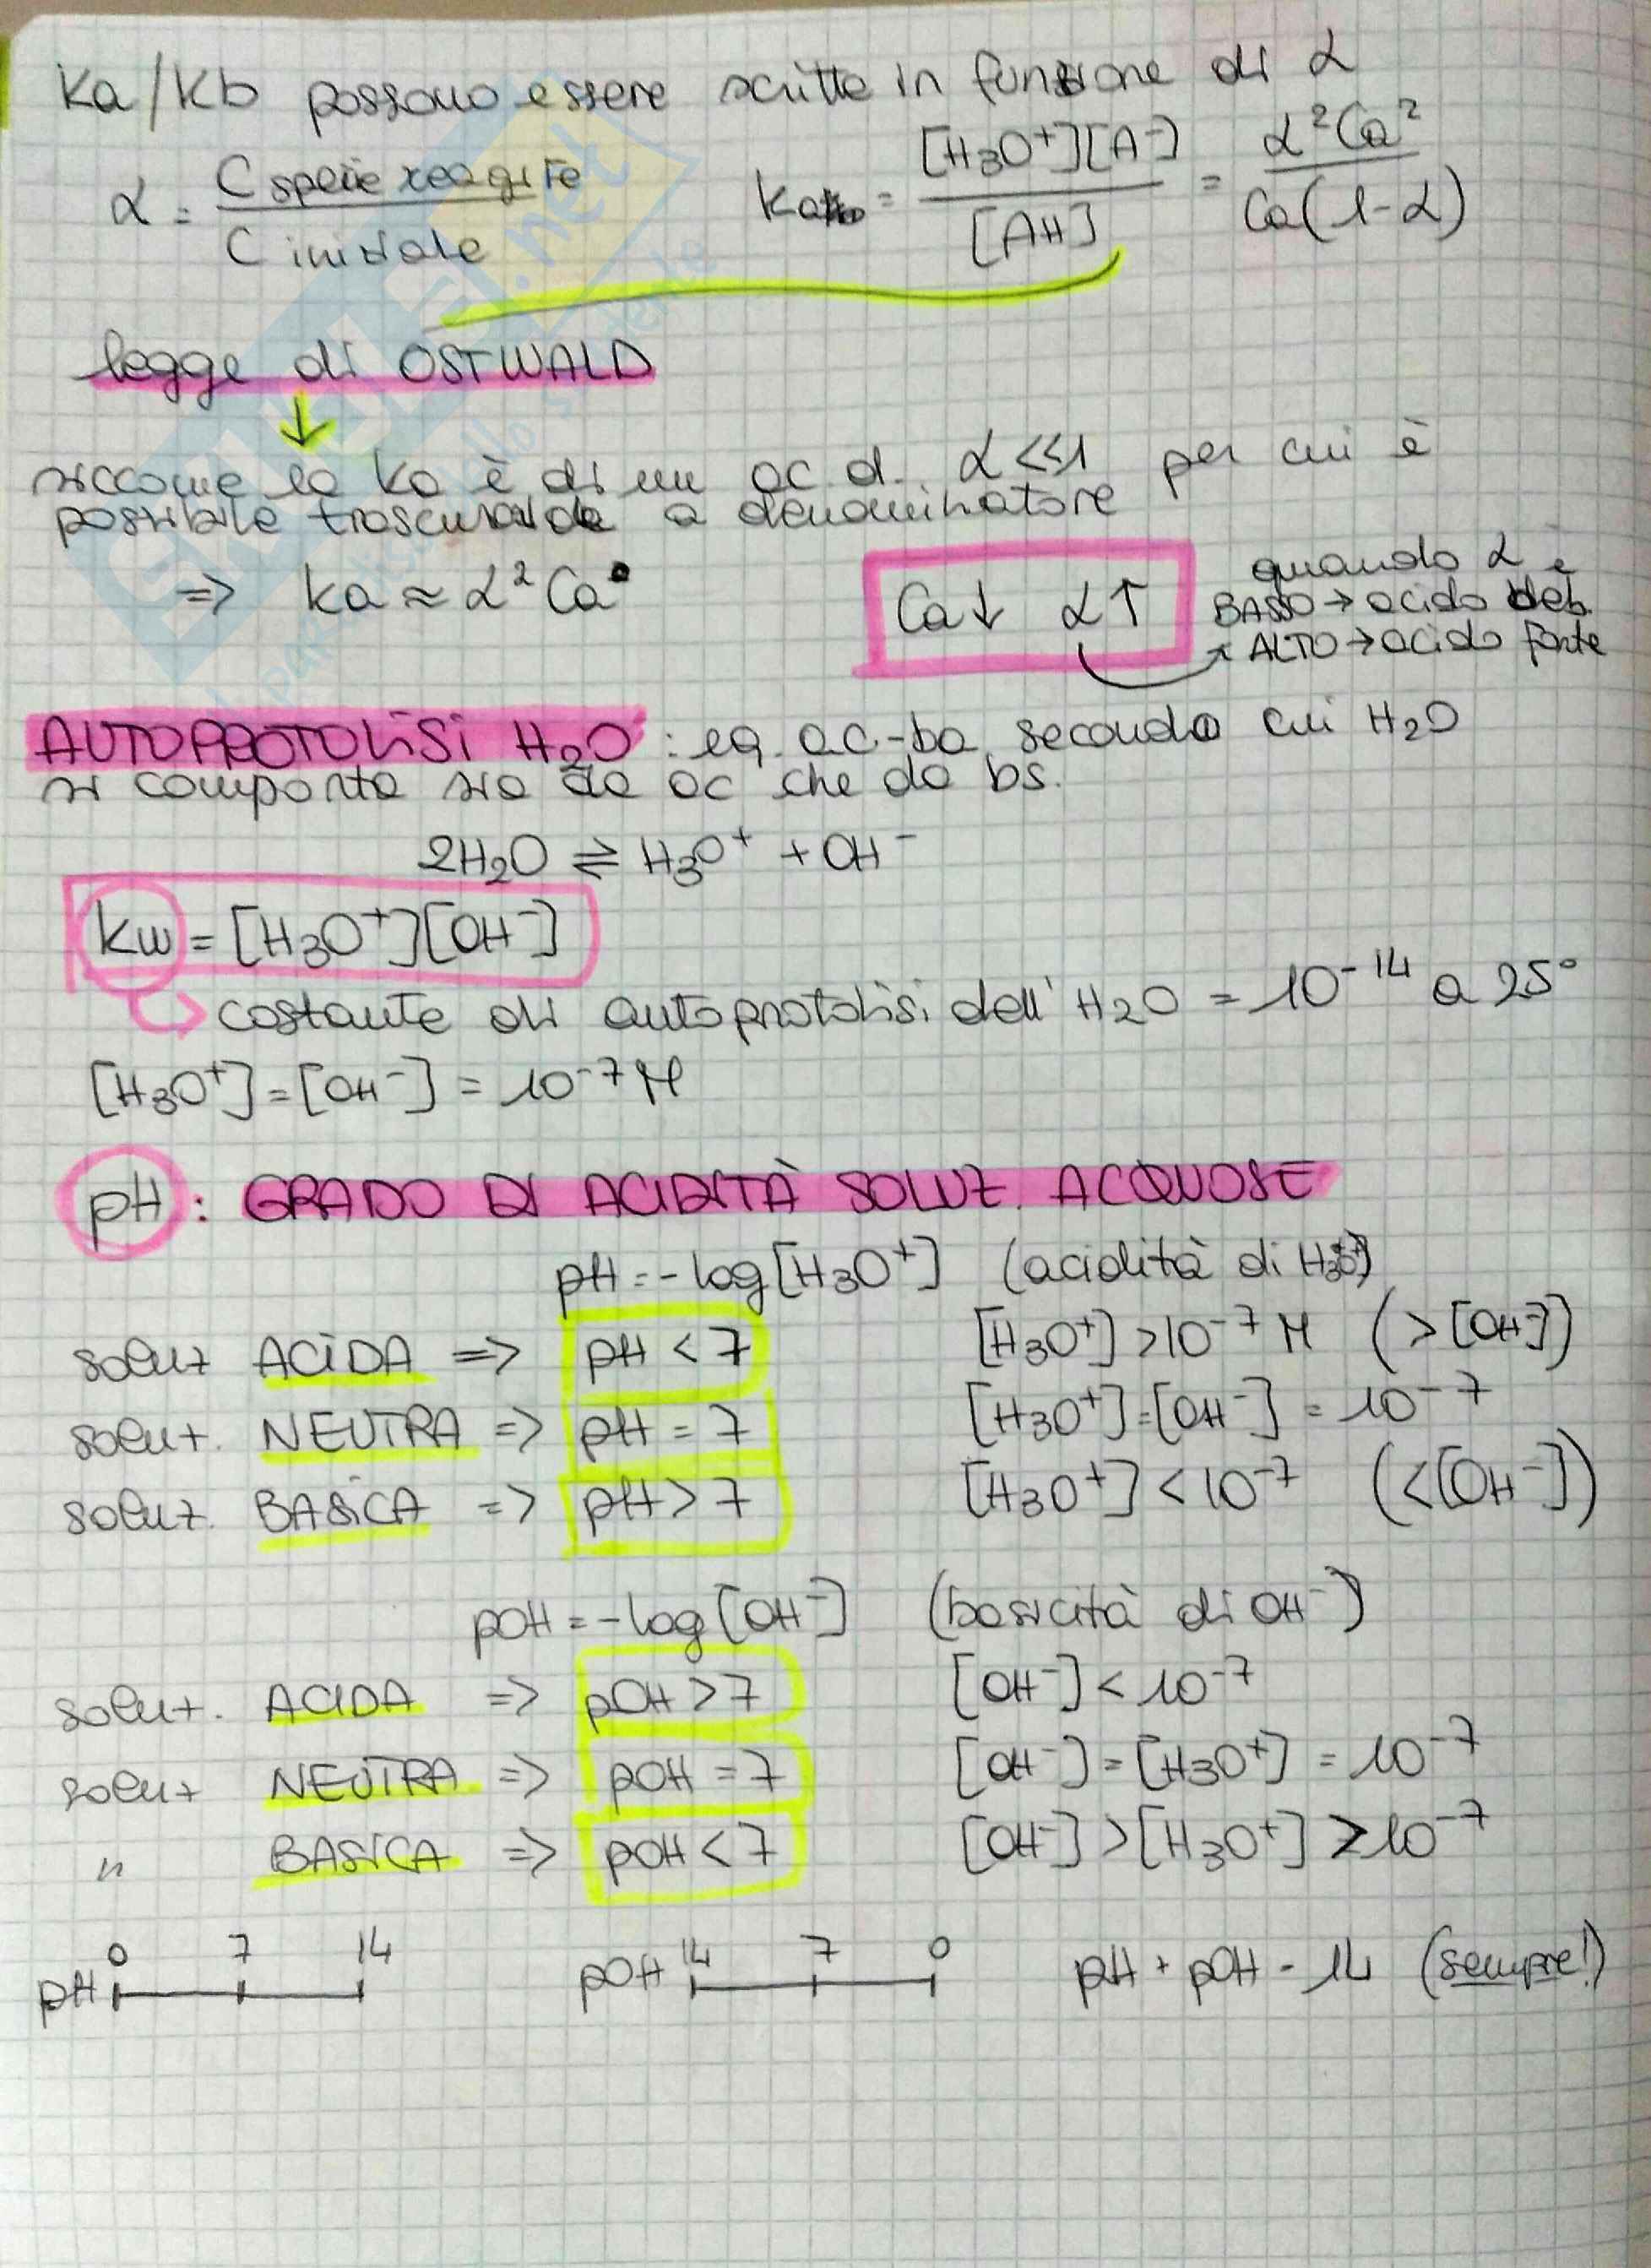 Ka/Kb possono essere scritte in funzione di α
α = C specie reagite / C iniziale
Ka = [H3O+][A-] / [AH] = α²Ca² / Ca(1-α)
legge di OSTWALD
siccome la Ka è di un ac. d. α<<1 per cui è
possibile trascurarla a denominatore
=> Ka ≈ α²Ca
Ca↓ α↑
quando α è
BASSO → acido deb.
ALTO → acido forte
AUTOPROTOLISI H2O : eq. ac-ba secondo cui H2O
si comporta sia da ac che da bs.
2H2O ⇌ H3O+ + OH-
Kw = [H3O+][OH-]
costante di autoprotolisi dell'H2O = 10-14 a 25°
[H3O+] = [OH-] = 10-7 M
pH : GRADO DI ACIDITÀ SOLUZ. ACQUOSE
pH = -log[H3O+] (acidità di H3O+)
soluz ACIDA => pH < 7 [H3O+] > 10-7 M (> [OH-])
soluz. NEUTRA => pH = 7 [H3O+] = [OH-] = 10-7
soluz. BASICA => pH > 7 [H3O+] < 10-7 (< [OH-])
pOH = -log[OH-] (basicità di OH-)
soluz. ACIDA => pOH > 7 [OH-] < 10-7
soluz NEUTRA => pOH = 7 [OH-] = [H3O+] = 10-7
" BASICA => pOH < 7 [OH-] > [H3O+] > 10-7
pH 0 7 14
pOH 14 7 0
pH + pOH = 14 (sempre!)